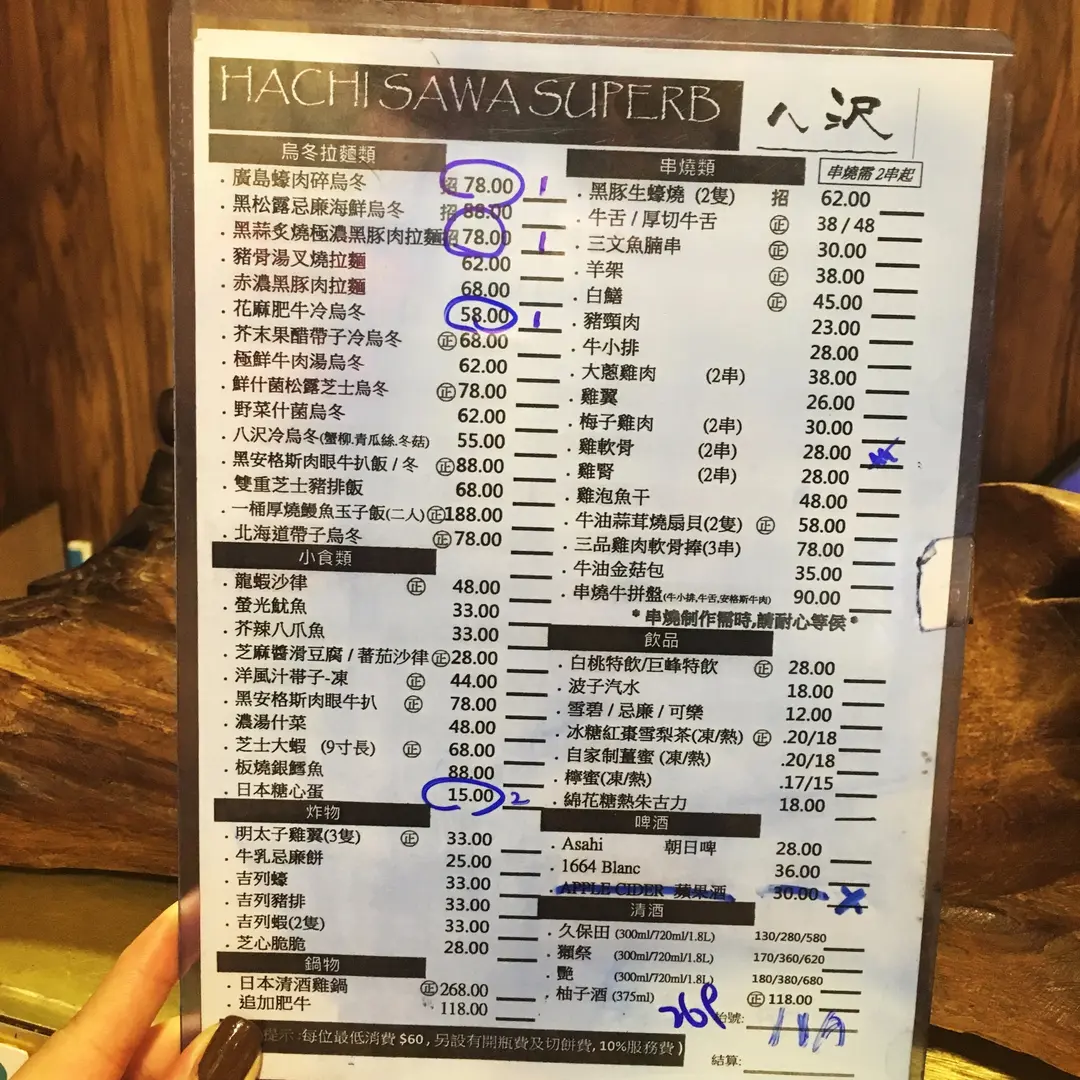 HACHI SAWA SUPERB 八沢
烏冬拉麵類
· 廣島蠔肉碎烏冬 招 78.00 1
· 黑松露忌廉海鮮烏冬 招 88.00
· 黑蒜炙燒極濃黑豚肉拉麵 招 78.00 1
· 豬骨湯叉燒拉麵 62.00
· 赤濃黑豚肉拉麵 68.00
· 花麻肥牛冷烏冬 58.00 1
· 芥末果醋帶子冷烏冬 正 68.00
· 極鮮牛肉湯烏冬 62.00
· 鮮什菌松露芝士烏冬 正 78.00
· 野菜什菌烏冬 62.00
· 八沢冷烏冬(蟹柳.青瓜絲.冬菇) 55.00
· 黑安格斯肉眼牛扒飯 / 冬 正 88.00
· 雙重芝士豬排飯 68.00
· 一桶厚燒鰻魚玉子飯(二人) 正 188.00
· 北海道帶子烏冬 正 78.00
小食類
· 龍蝦沙律 正 48.00
· 螢光魷魚 33.00
· 芥辣八爪魚 33.00
· 芝麻醬滑豆腐 / 蕃茄沙律 正 28.00
· 洋風汁帶子-凍 正 44.00
· 黑安格斯肉眼牛扒 正 78.00
· 濃湯什菜 48.00
· 芝士大蝦 (9寸長) 正 68.00
· 板燒銀鱈魚 88.00
· 日本糖心蛋 15.00 2
炸物
· 明太子雞翼(3隻) 正 33.00
· 牛乳忌廉餅 25.00
· 吉列蠔 33.00
· 吉列豬排 33.00
· 吉列蝦(2隻) 33.00
· 芝心脆脆 28.00
鍋物
· 日本清酒雞鍋 正 268.00
· 追加肥牛 118.00
串燒類 串燒需 2串起
· 黑豚生蠔燒 (2隻) 招 62.00
· 牛舌 / 厚切牛舌 正 38 / 48
· 三文魚腩串 正 30.00
· 羊架 正 38.00
· 白鱔 正 45.00
· 豬頸肉 23.00
· 牛小排 28.00
· 大蔥雞肉 (2串) 38.00
· 雞翼 26.00
· 梅子雞肉 (2串) 30.00
· 雞軟骨 (2串) 28.00
· 雞腎 (2串) 28.00
· 雞泡魚干 48.00
· 牛油蒜茸燒扇貝(2隻) 正 58.00
· 三品雞肉軟骨捧(3串) 78.00
· 牛油金菇包 35.00
· 串燒牛拼盤(牛小排,牛舌,安格斯牛肉) 90.00
* 串燒制作需時,請耐心等侯 *
飲品
· 白桃特飲/巨峰特飲 正 28.00
· 波子汽水 18.00
· 雪碧 / 忌廉 / 可樂 12.00
· 冰糖紅棗雪梨茶(凍/熱) 正 .20/18
· 自家制薑蜜 (凍/熱) .20/18
· 檸蜜(凍/熱) .17/15
· 綿花糖熱朱古力 18.00
啤酒
· Asahi 朝日啤 28.00
· 1664 Blanc 36.00
· APPLE CIDER 蘋果酒 30.00 X
清酒
· 久保田 (300ml/720ml/1.8L) 130/280/580
· 獺祭 (300ml/720ml/1.8L) 170/360/620
· 艷 (300ml/720ml/1.8L) 180/380/680
· 柚子酒 (375ml) 正 118.00
枱號: 11A
提示 :每位最低消費 $60 , 另設有開瓶費及切餅費, 10%服務費 )
結算: